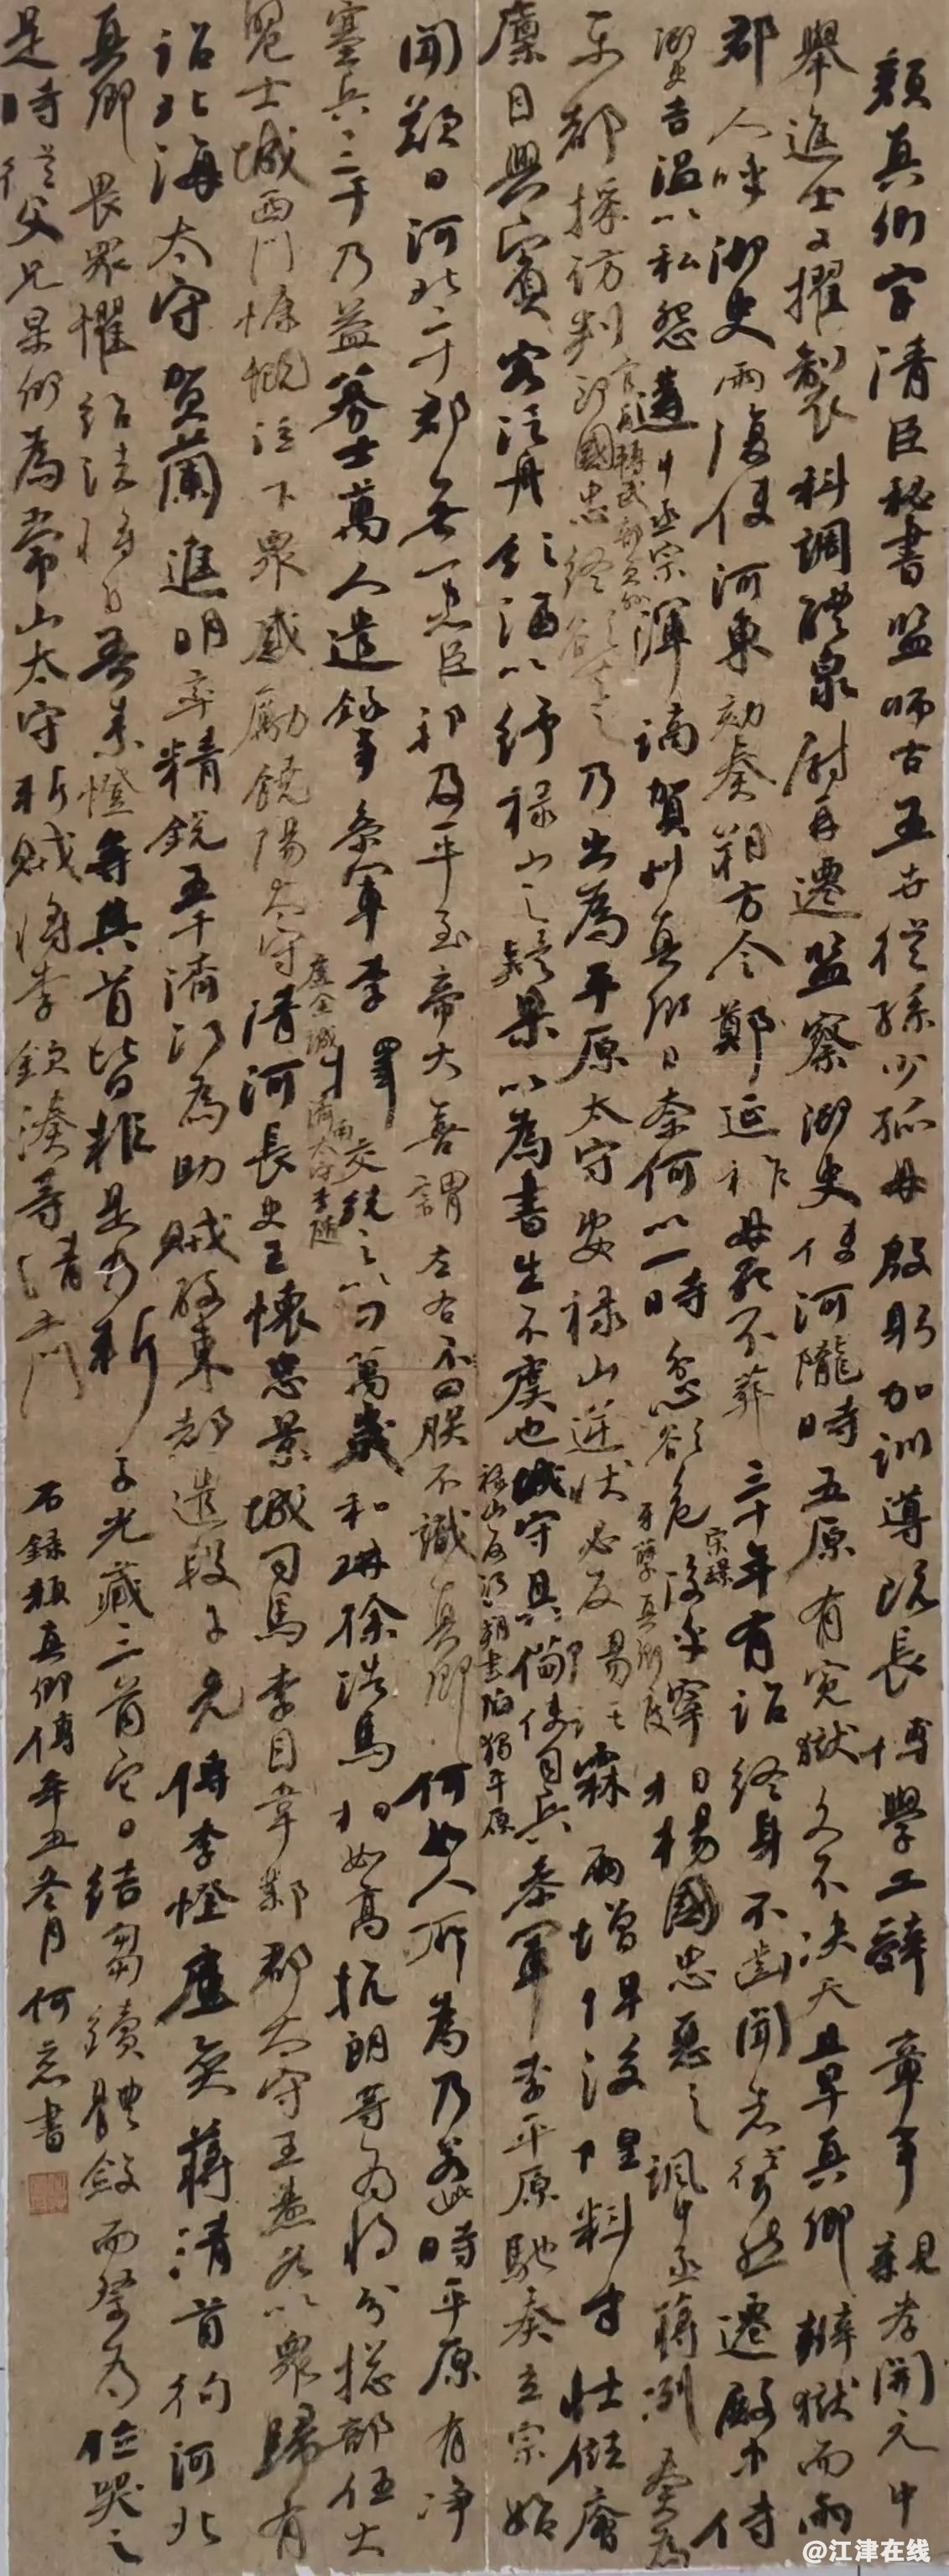 顏真卿字清臣秘書監師古五世從孫少孤母殷躬加訓導既長博學工辭章事親孝開元中
舉進士又擢製科調醴泉尉再遷監察御史使河隴時五原有冤獄久不決天且旱真卿辦獄而雨
郡人呼御史雨復使河東劾奏朔方令鄭延祚母死不葬三十年有詔終身不齒聞者聳然遷殿中侍
御史吉溫以私怨遘中丞宋渾謫賀州真卿曰奈何以一時忿欲危宋璟後乎宰相楊國忠惡之諷中丞蔣冽奏為
東都採訪判官再轉武部員外郎國忠終欲去之乃出為平原太守安祿山逆狀必反霖雨增陴浚隍料才壯儲廥
廩日與賓客泛舟飲酒以紓祿山之疑果以為書生不虞也祿山反河朔盡陷獨平原城守具備使司兵參軍李平原馳奏玄宗始
聞歎曰河北二十郡無一忠臣邪及平至帝大喜謂左右曰朕不識真卿何如人所為乃若此時平原有凈
塞兵三千乃益募士萬人遣錄事參軍李擇交統之以刁萬歲和琳徐浩馬相如高抗朗等為將分總部伍大
饗士城西門慷慨泣下眾感勵饒陽太守盧全誠濟南太守李隨清河長史王懷忠景城司馬李暐鄴郡太守王燾各以眾歸有
詔北海太守賀蘭進明率精銳五千濟河為助賊破東都遣段子光傳李憕盧奕蔣清首徇河北
真卿畏眾懼紿諸將曰吾素憕等其首皆非是乃斬子光藏三首它日結芻續體斂而祭為位哭之
是時從父兄杲卿為常山太守斬賊將李欽湊等清土門
右錄顏真卿傳辛丑冬月何書
@江津在线